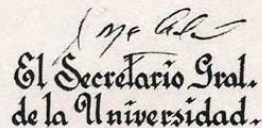 El Secretario Gral.
de la Universidad.